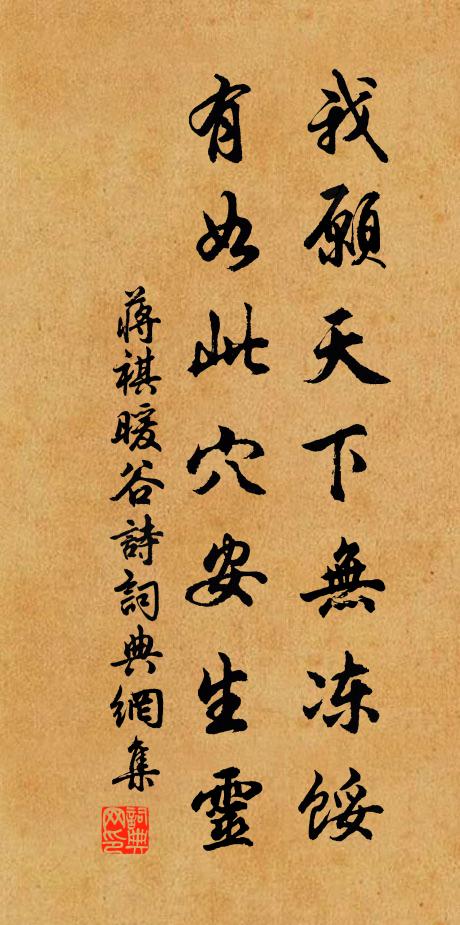 我願天下無凍餒
有如此穴安生靈
蔣祺暖谷詩詞典網集
詞典网印